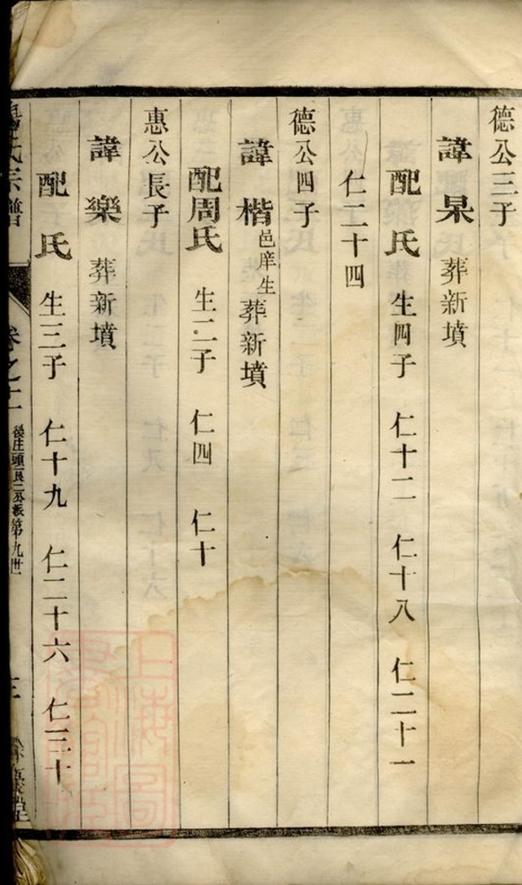 德公三子
諱杲 葬新墳
配氏 生四子 仁十二 仁十八 仁二十一
仁二十四
德公四子
諱楷邑庠生葬新墳
配周氏 生二子 仁四 仁十
惠公長子
諱樂 葬新墳
配氏 生三子 仁十九 仁二十六 仁三十
氏宗譜
卷之十
後庄頭 良二公派第十九世
三